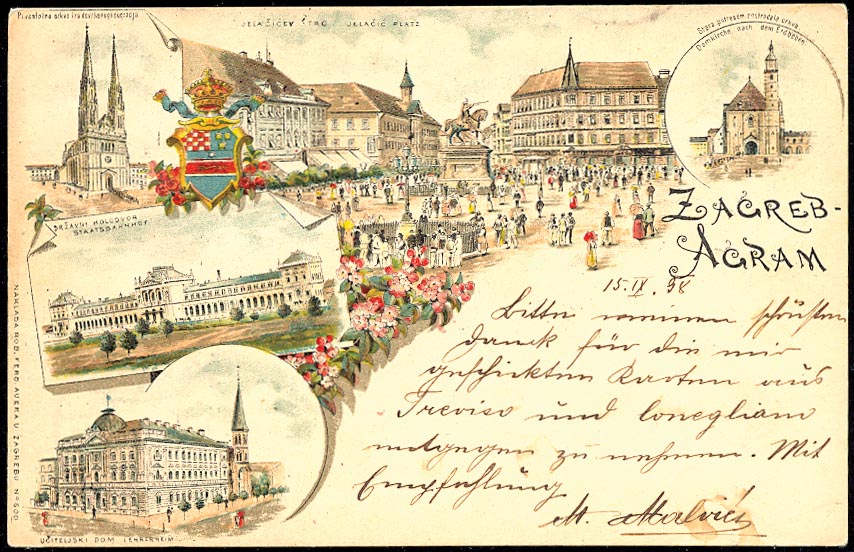 Prvostolna crkva
JELAČIĆEV TRG JELAČIĆ PLATZ
Stara potresom postradala crkva
Domkirche nach dem Erdbeben
DRŽAVNI KOLODVOR
STAATSBAHNHOF
ZAGREB-
AGRAM
15. IX. 98
Bitte meinen schönsten
Dank für die mir
geschickten Karten aus
Treviso und Conegliano
entgegen zu nehmen. Mit
Empfehlung
M.
UČITELJSKI DOM LEHRERHEIM
NAKLADA ROB. FERD. AUERA U ZAGREBU No 600.